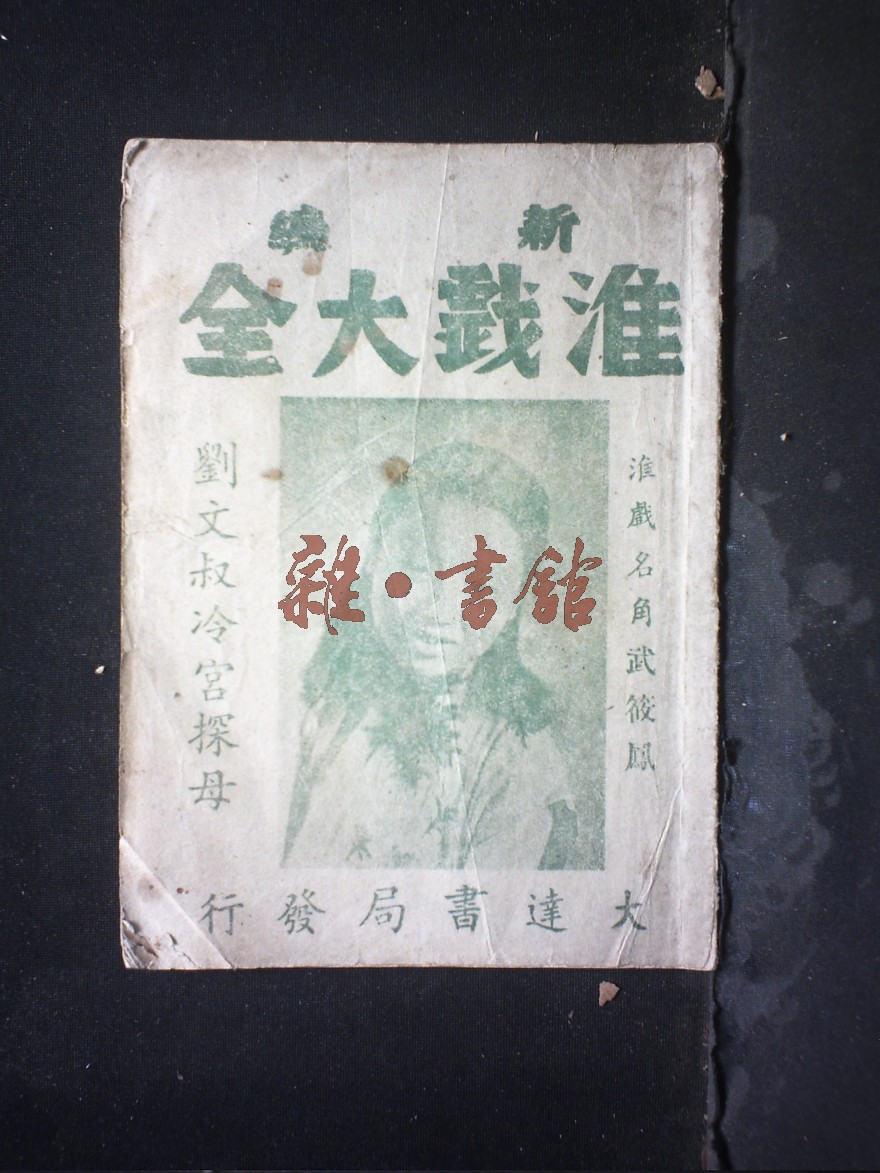 新編
淮戲大全
淮戲名角武筱鳳
劉文叔冷宮探母
大達書局發行
雜·書舘